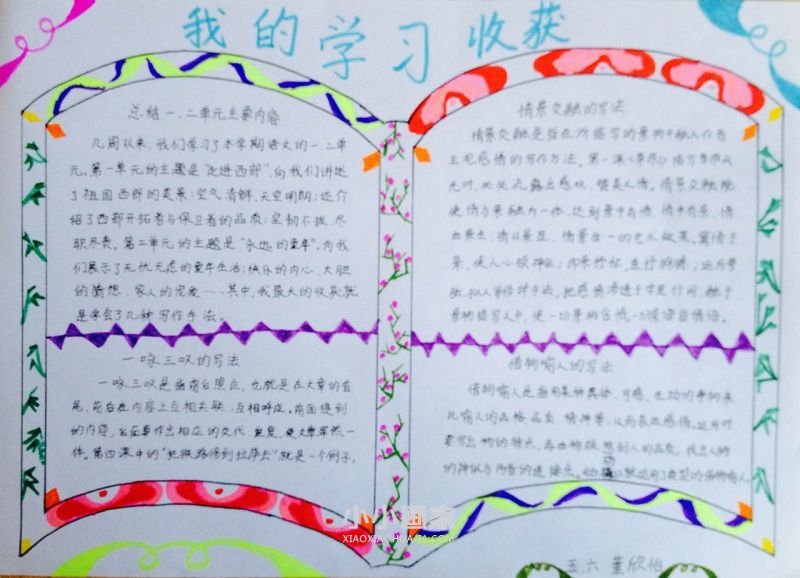 我的学习收获
总结一、二单元主要内容
几周以来，我们学习了本学期语文的一、二单
元。第一单元的主题是“走进西部”，向我们讲述
了祖国西部的美景：空气清鲜、天空明朗；还介
绍了西部开拓者与保卫者的品质：坚韧不拔、尽
职尽责。第二单元的主题是“永远的童年”，向我
们展示了无忧无虑的童年生活：快乐的内心、大胆
的猜想、家人的宠爱……其中，我最大的收获就
是学会了几种写作手法。
一咏三叹的写法
一咏三叹是指前后照应，也就是在文章的首
尾、前后在内容上互相关联、互相呼应。前面提到
的内容，后面要作出相应的交代、重复，使文章浑然一
体。第四课中的“把铁路修到拉萨去”就是一个例子。
情景交融的写法
情景交融是指在所描写的景物中融入作者
主观感情的写作方法。第一课《草原》描写草原风
光时，处处流露出感叹、赞美人情。情景交融能
使情与景融为一体，达到景中有情、情中有景、情
由景生、情以景显、情景合一的艺术效果。寓情于
景，使人心领神会；即景抒怀，直抒胸臆；运用夸
张、拟人等修辞手法，把感情渗透于字里行间，融于
景物描写之中，使一切景物含情，一切景语皆情语。
借物喻人的写法
借物喻人是指用某种具体、可感、生动的事物来
比喻人的品格、品质、精神等，从而表达感情。运用时
要写出物的特点，再由物联想到人的品质，找出人物
的神似与两者的连接点。
五.六
小小画家
XIAOXIAOHUAJIA.COM